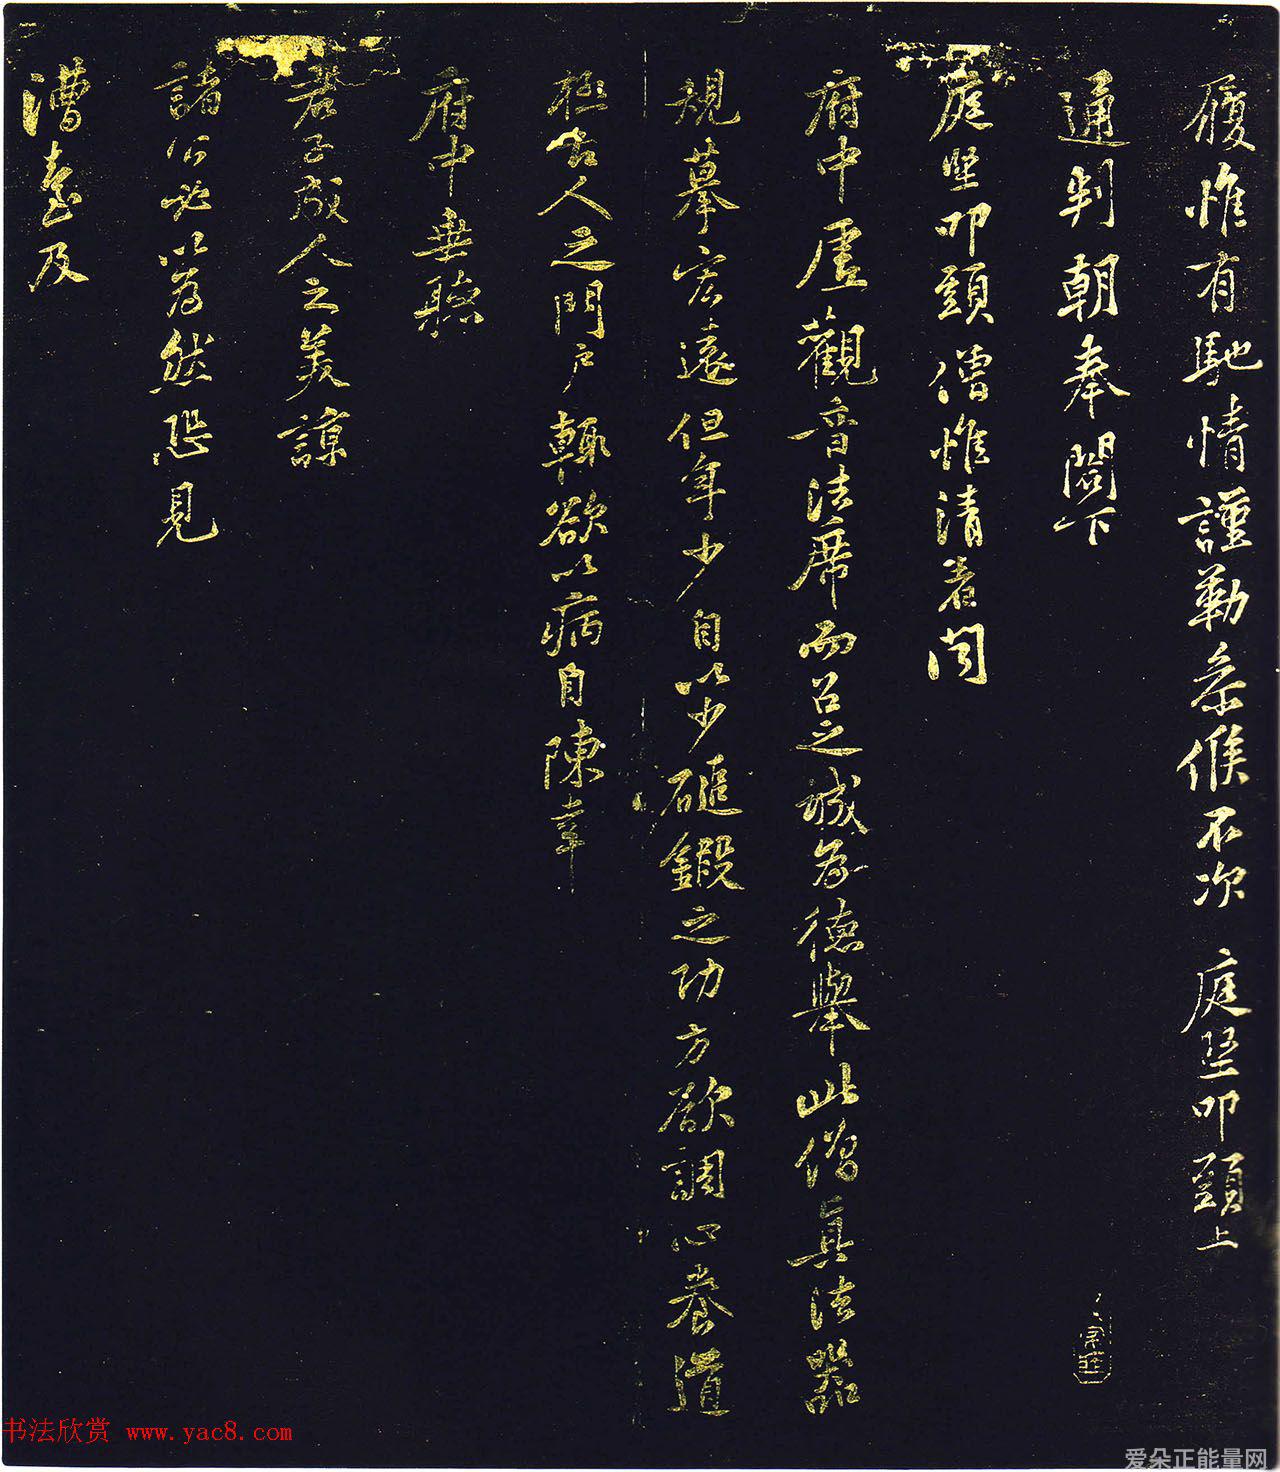 履惟有馳情謹勒參候不次 庭堅叩頭上
通判朝奉閤下
庭堅叩頭僧惟清者聞
府中虛觀音法席而召之誠為德舉此僧真法器
規摹宏遠但年少自以少磓鍛之功方欲調心養道
極古人之門戶輙欲以病自陳幸
府中垂聽
君子成人之美諒
諸公必以為然恐見
漕臺及
书法欣赏 www.yac8.com
爱朵正能量网